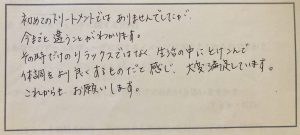 初めてのトリートメントではありませんでしたが、
今までと違うことがわかります。
その時だけのリラックスではなく生活の中にとけこんで
体調をより良くするものだと感じ、大変満足しています。
これからも お願いします。